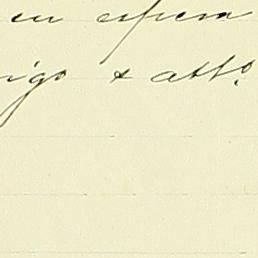 en espera
igo & atto.